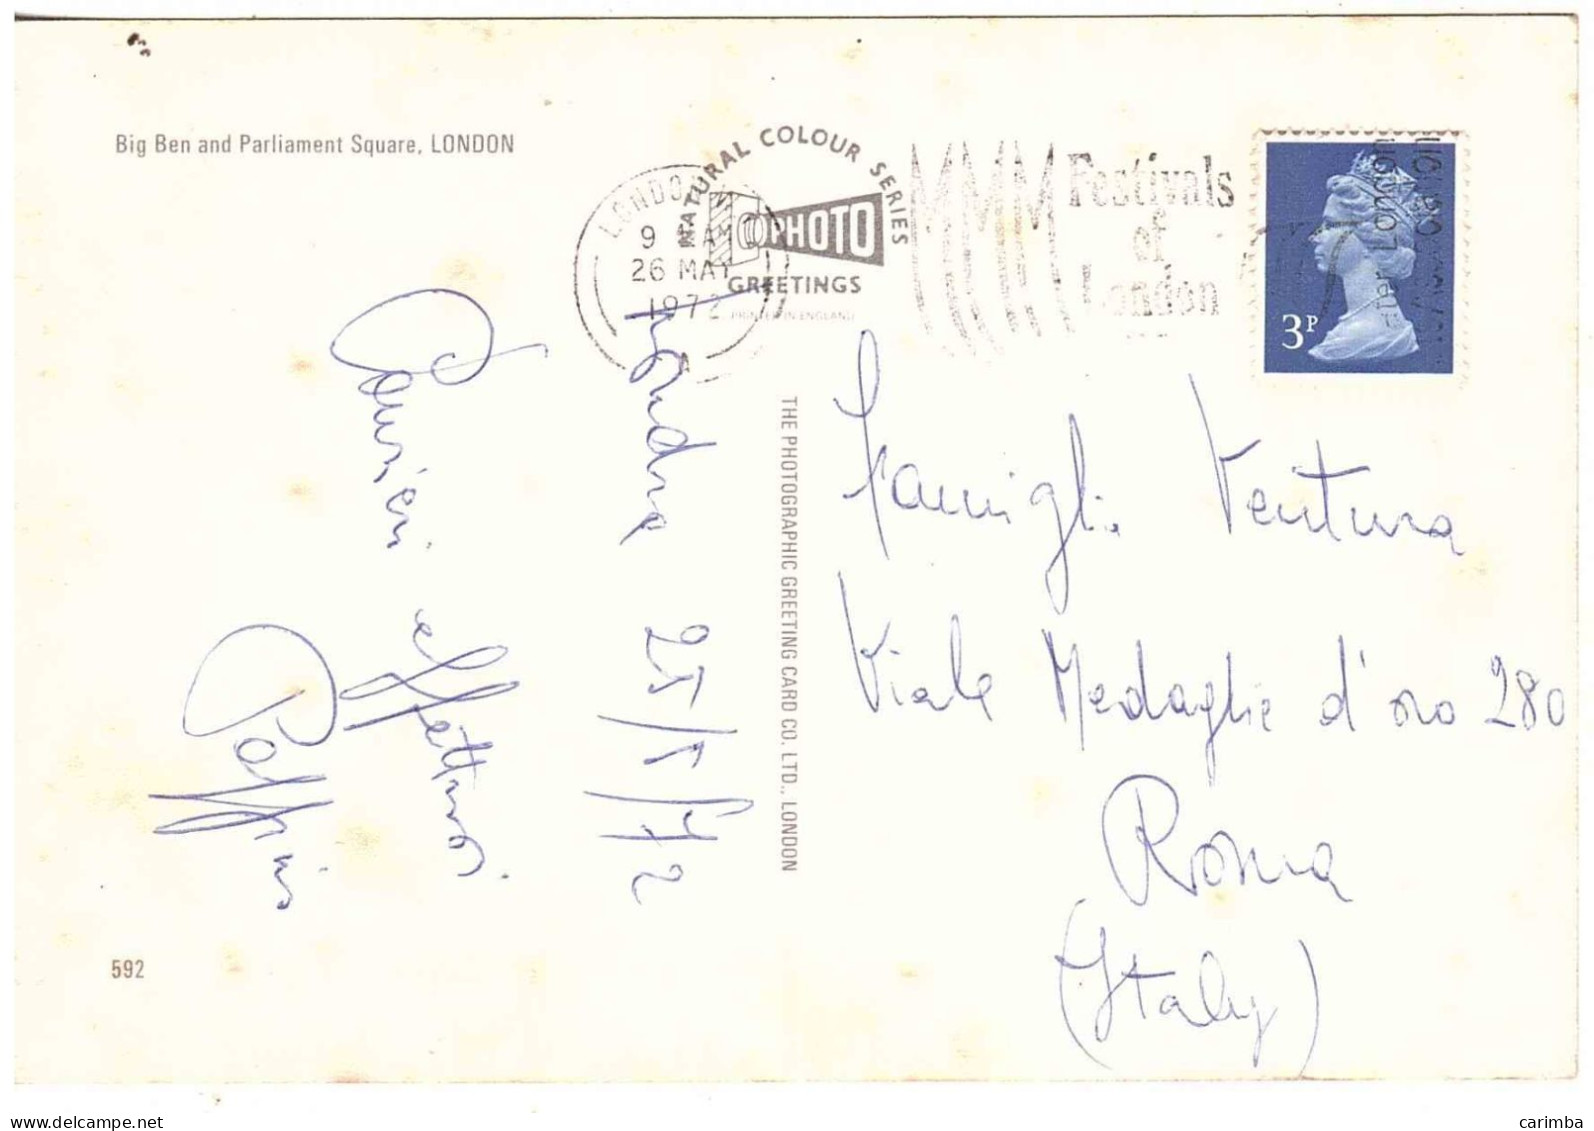 Big Ben and Parliament Square, LONDON
NATURAL COLOUR SERIES
PHOTO
GREETINGS
PRINTED IN ENGLAND
LONDON
9
26 MAY
1972
Festivals
of
London
3P
Londra 25/5/72
Pensieri affettuosi
THE PHOTOGRAPHIC GREETING CARD CO. LTD., LONDON
Famiglia Ventura
Viale Medaglie d'oro 280
Roma
(Italy)
592
delcampe.net
carimba